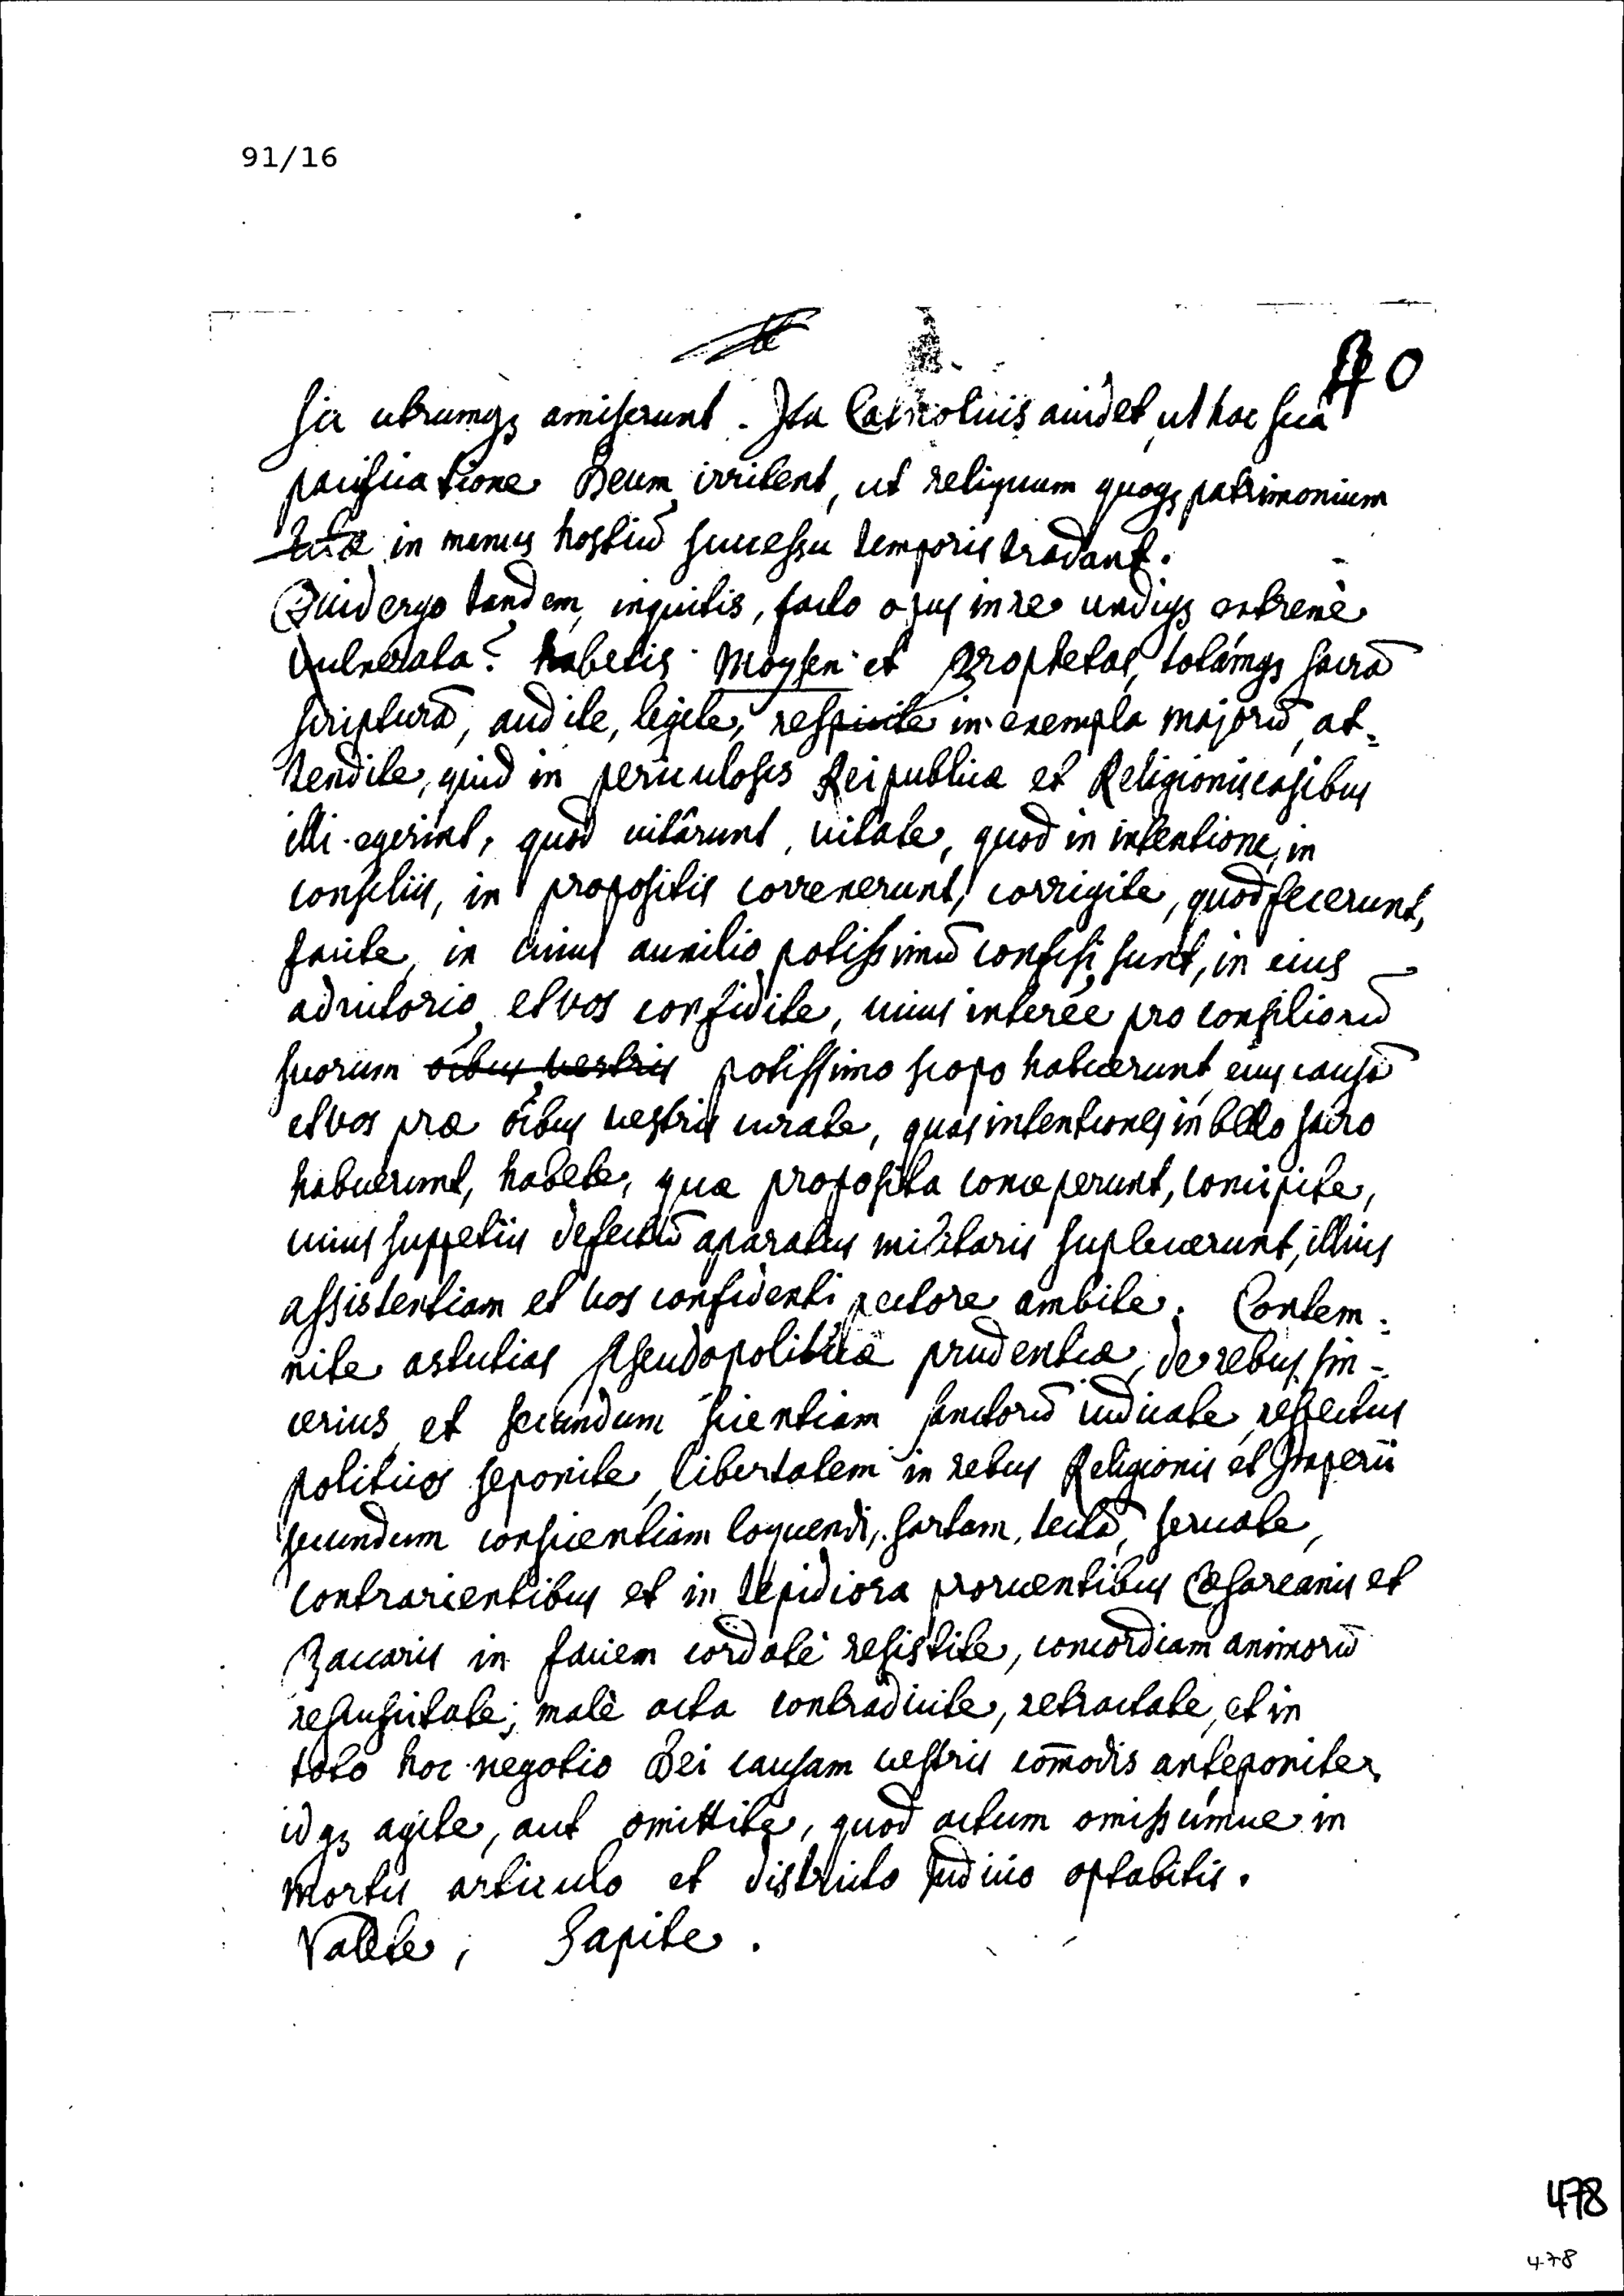 91/16
40
sic utrumqꝫ amiserunt. Ita Catholicis accidet, ut hac suâ
pacificatione Deum irritent, ut reliquum quoqꝫ patrimonium
in manus hostiū successu temporis tradant.
Quid ergo tandem, inquitis, facto opus in re undiqꝫ extremè
vulnerata? habetis Moysen et Prophetas, totámqꝫ sacrā
scripturā, audite, legite, respicite in exempla majorū, at=
tendite, quid in periculosis Reipublicæ et Religionis casibus
illi egerint, quod vitârunt, vitate, quod in intentione, in
consiliis, in propositis correxerunt, corrigite, quod fecerunt,
facite, in cuius auxilio potissimū confisi sunt, in eius
adiutorio et vos confidite, cuius interee pro consiliorū
suorum oībus vestris potissimo scopo habuerunt, eius causā
et vos præ oībus vestris curate, quas intentiones in bello sacro
habuerunt, habete, quæ proposita conceperunt, concipite,
cuius suppetiis defectū aparatus militaris supleverunt, illius
assistentiam et vos confidenti pectore ambite. Contem=
nite astutias Pseudopoliticæ prudentiæ, de rebus sin=
cerius et secundum scientiam sanctorū iudicate, respectus
politicos seponite, libertatem in rebus Religionis et Imperii
secundum conscientiam loquendi, sartam, tectā, servate,
contrarientibus et in tepidiora proruentibus Cæsareanis et
Bavaris in faciem cordatè resistite, concordiam animorū
resuscitate; malè acta contradicite, retractate, et in
toto hoc negotio Dei causam vestris com̄odis anteponite,
idqꝫ agite, aut omittite, quod actum omissúmve in
mortis articulo et districto Judicio optabitis.
Valete, Sapite.
478
478